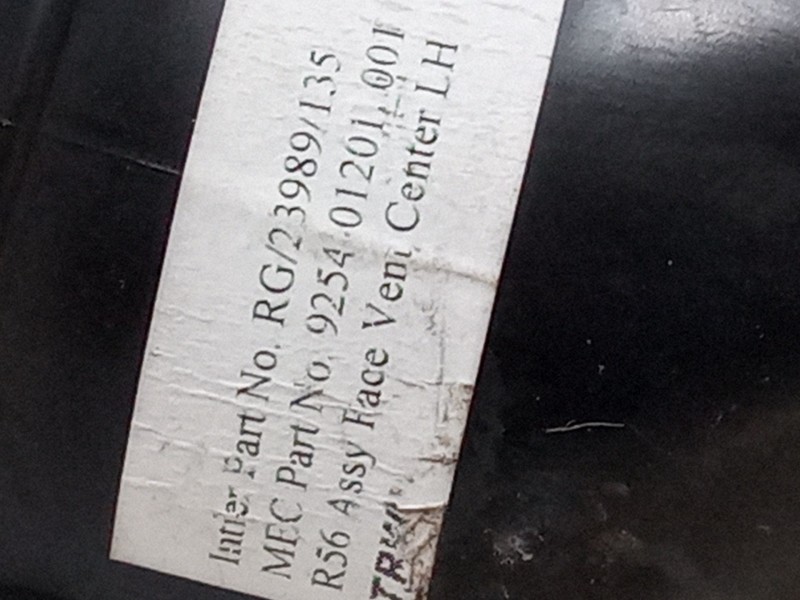 Intier Part No. RG/23989/135
MEC Part No. 9254 01201 001
R56 Assy Face Vent Center LH